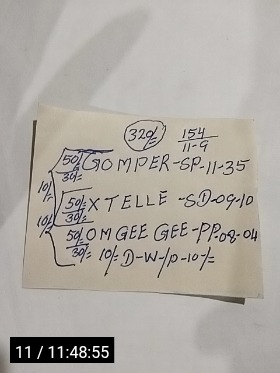 320/= 154
11-9
50/= GOMPER-SP-11-35
30/=
10/=
50/= XTELLE -SD-09-10
30/=
10/=
50/= OM GEE GEE-PP-08-04
30/= 10/= D-W-/P-10-/=
11 / 11:48:55